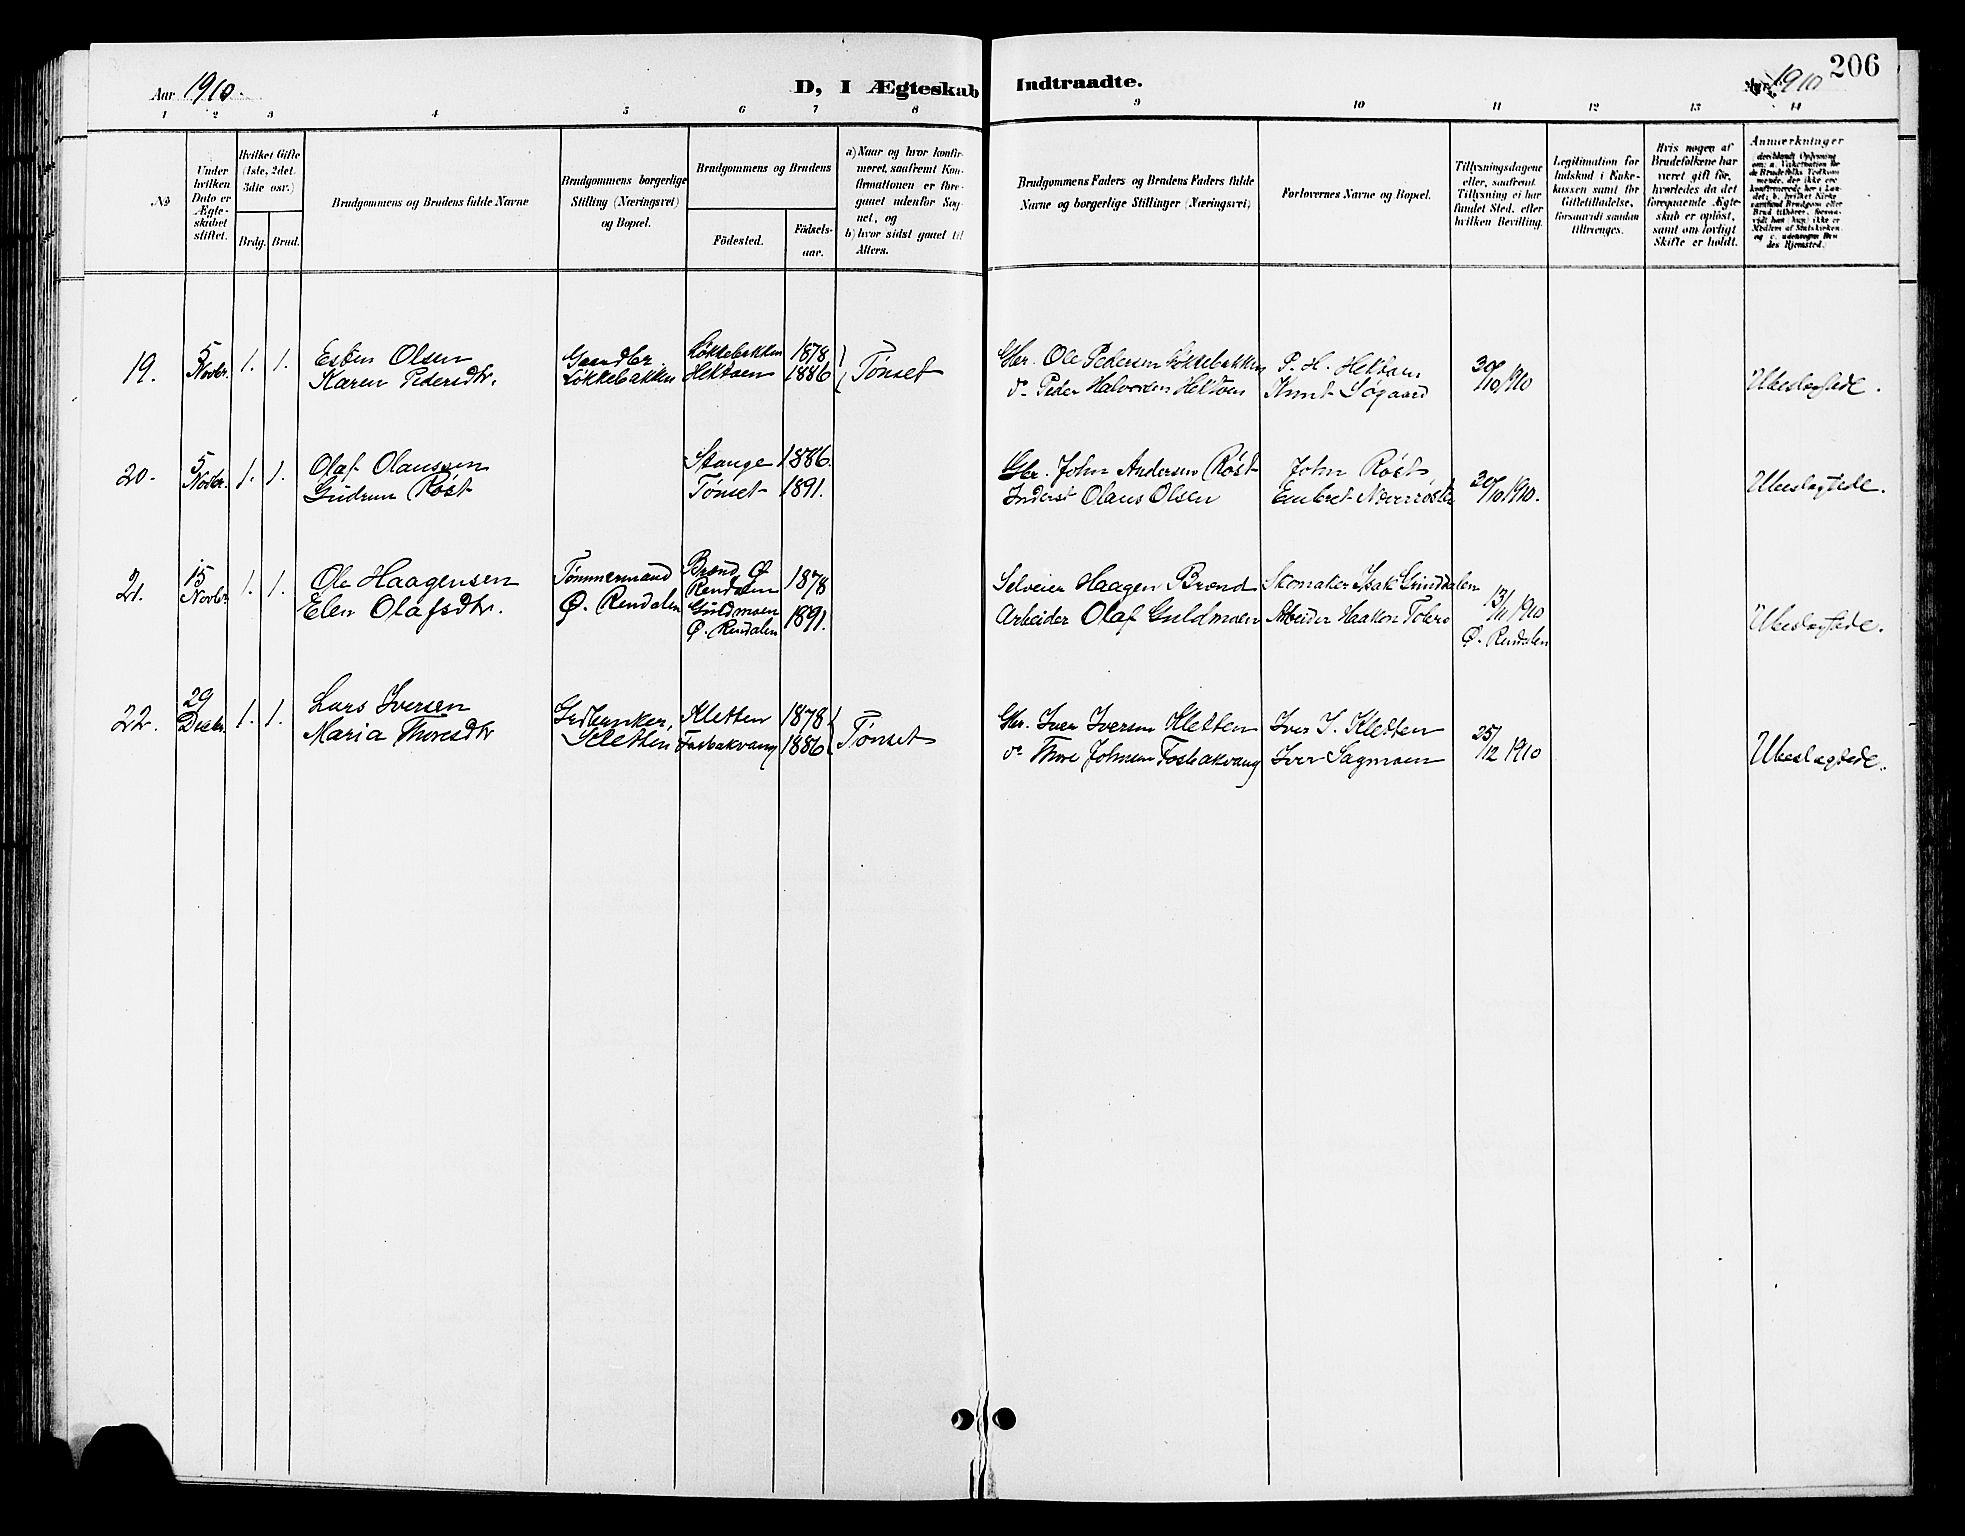 206
Aar 1910.
D, I Ægteskab Indtraadte.
Aar 1910
1 2 3 4 5 6 7 8 9 10 11 12 13 14
No
Under hvilken Dato er Ægteskabet stiftet.
Hvilket Gifte (1ste, 2det, 3die osr.)
Brdg. Brud.
Brudgommens og Brudens fulde Navne
Brudgommens borgerlige Stilling (Næringsvei) og Bopæl.
Brudgommens og Brudens
Födested.
Födselsaar.
a) Naar og hvor konfirmeret, saafremt Konfirmationen er foregaaet udenfor Sognet, og
b) hvor sidst gaaet til Alters.
Brudgommens Faders og Brudens Faders fulde Navne og borgerlige Stillinger (Næringsvei)
Forlovernes Navne og Bopæl.
Tillysningsdagene eller, saafremt Tillysning ei har fundet Sted, efter hvilken Bevilling.
Legitimation for Indskud i Enkekassen samt for Giftetilladelse, forsaavidt saadan tiltrænges.
Hvis nogen af Brudefolkene har været gift før, hvorledes da det foregaaende Ægteskab er opløst, samt om lovligt Skifte er holdt.
Anmærkninger
19. 5 Novbr. 1. 1. Esten Olsen Gaardbr. Løkkebakken 1878 Tønset Gbr. Ole Pedersen Løkkebakken P. H. Hektoen 30/10 1910 Ubeslægtede.
Karen Pedersdtr. Løkkebakken Hektoen 1886 do Peder Halvorsen Hektoen Knut Søgaard
20. 5 Novbr. 1. 1. Olaf Olaussen Stange 1886. Gbr. John Andersen Røst John Røst 20/10 1910. Ubeslægtede.
Gudrun Røst Tønset 1891. Inderst Olaus Olsen Embret
21. 15 Novbr. 1. 1. Ole Haagensen Tømmermand Brænd Ø Rendalen 1878 Selveier Haagen Brænd Skomaker Isak Grinddalen 13/11 1910 Ø. Rendalen Ubeslægtede.
Elen Olafsdtr. Ø. Rendalen Guldmoen Ø. Rendalen 1891. Arbeider Olaf Guldmoen Arbeider Haakon
22. 29 Decbr. 1. 1. Lars Iversen Gedbruker, Kletten 1878 Tønset Gbr. Iver Iversen Kletten Iver I. Kletten 25/12 1910 Ubeslægtede.
Maria Thoresdtr Kletten Fosbakvang 1886 do Thore Johnsen Fosbakvang Iver Sagmoen